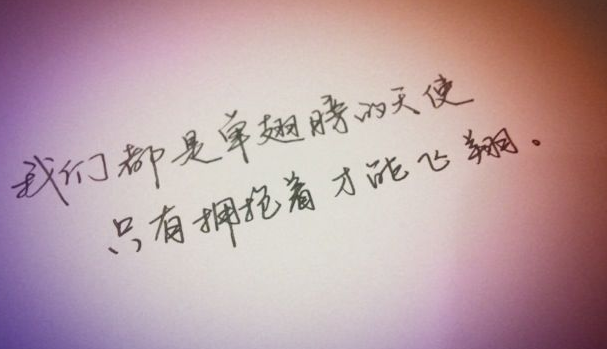 我们都是单翅膀的天使
只有拥抱着才能飞翔。